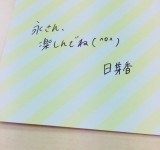 永さん、
楽しんでね(^o^)
日芽香